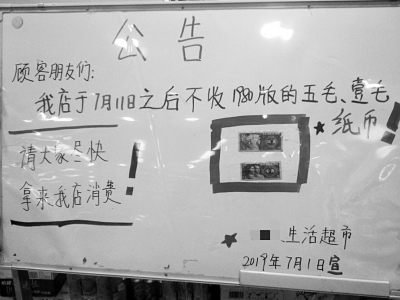 公告
顾客朋友们:
我店于7月11日之后不收1980版的五毛、壹毛
纸币
请大家尽快
拿来我店消费!
生活超市
2019年7月1日宣